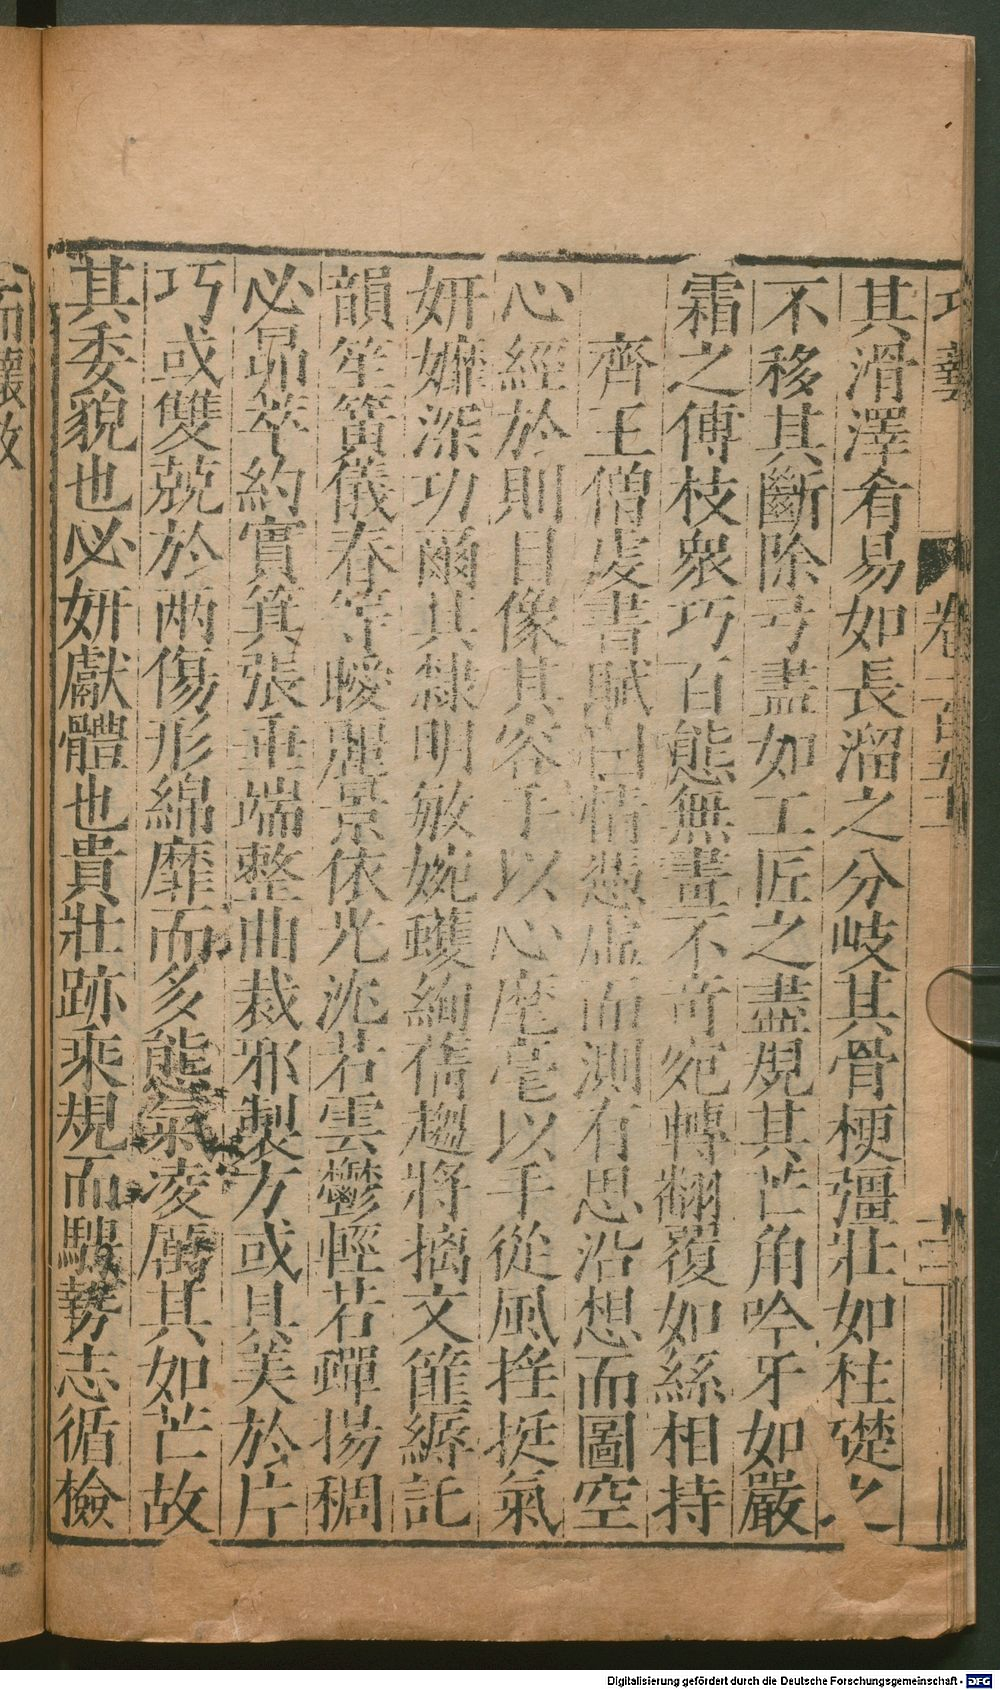 其滑澤肴易如長溜之分岐其骨梗彊壯如柱礎之
不移其斷除弓盡如工匠之盡規其芒角吟牙如嚴
霜之傅枝衆巧百態無盡不奇宛轉翻覆如絲相持
齊王僧虔書賦曰情憑虛而測有思沿想而圖空
心經於則目像其容手以心麾毫以手從風揺挺氣
妍孅深功爾其隸明敏婉蠖絢蒨趨將摛文篚縟託
韻笙簧儀春等曖麗景依光沈若雲鬱輕若蟬揚稠
必昂萃約實箕張垂端整曲裁邪製方或具美於片
巧或雙兢於兩傷形綿靡而多態氣凌厲其如芒故
其委貌也必妍獻體也貴壯跡乘規而騁勢志循檢
而懷放
Digitalisierung gefördert durch die Deutsche Forschungsgemeinschaft - DFG